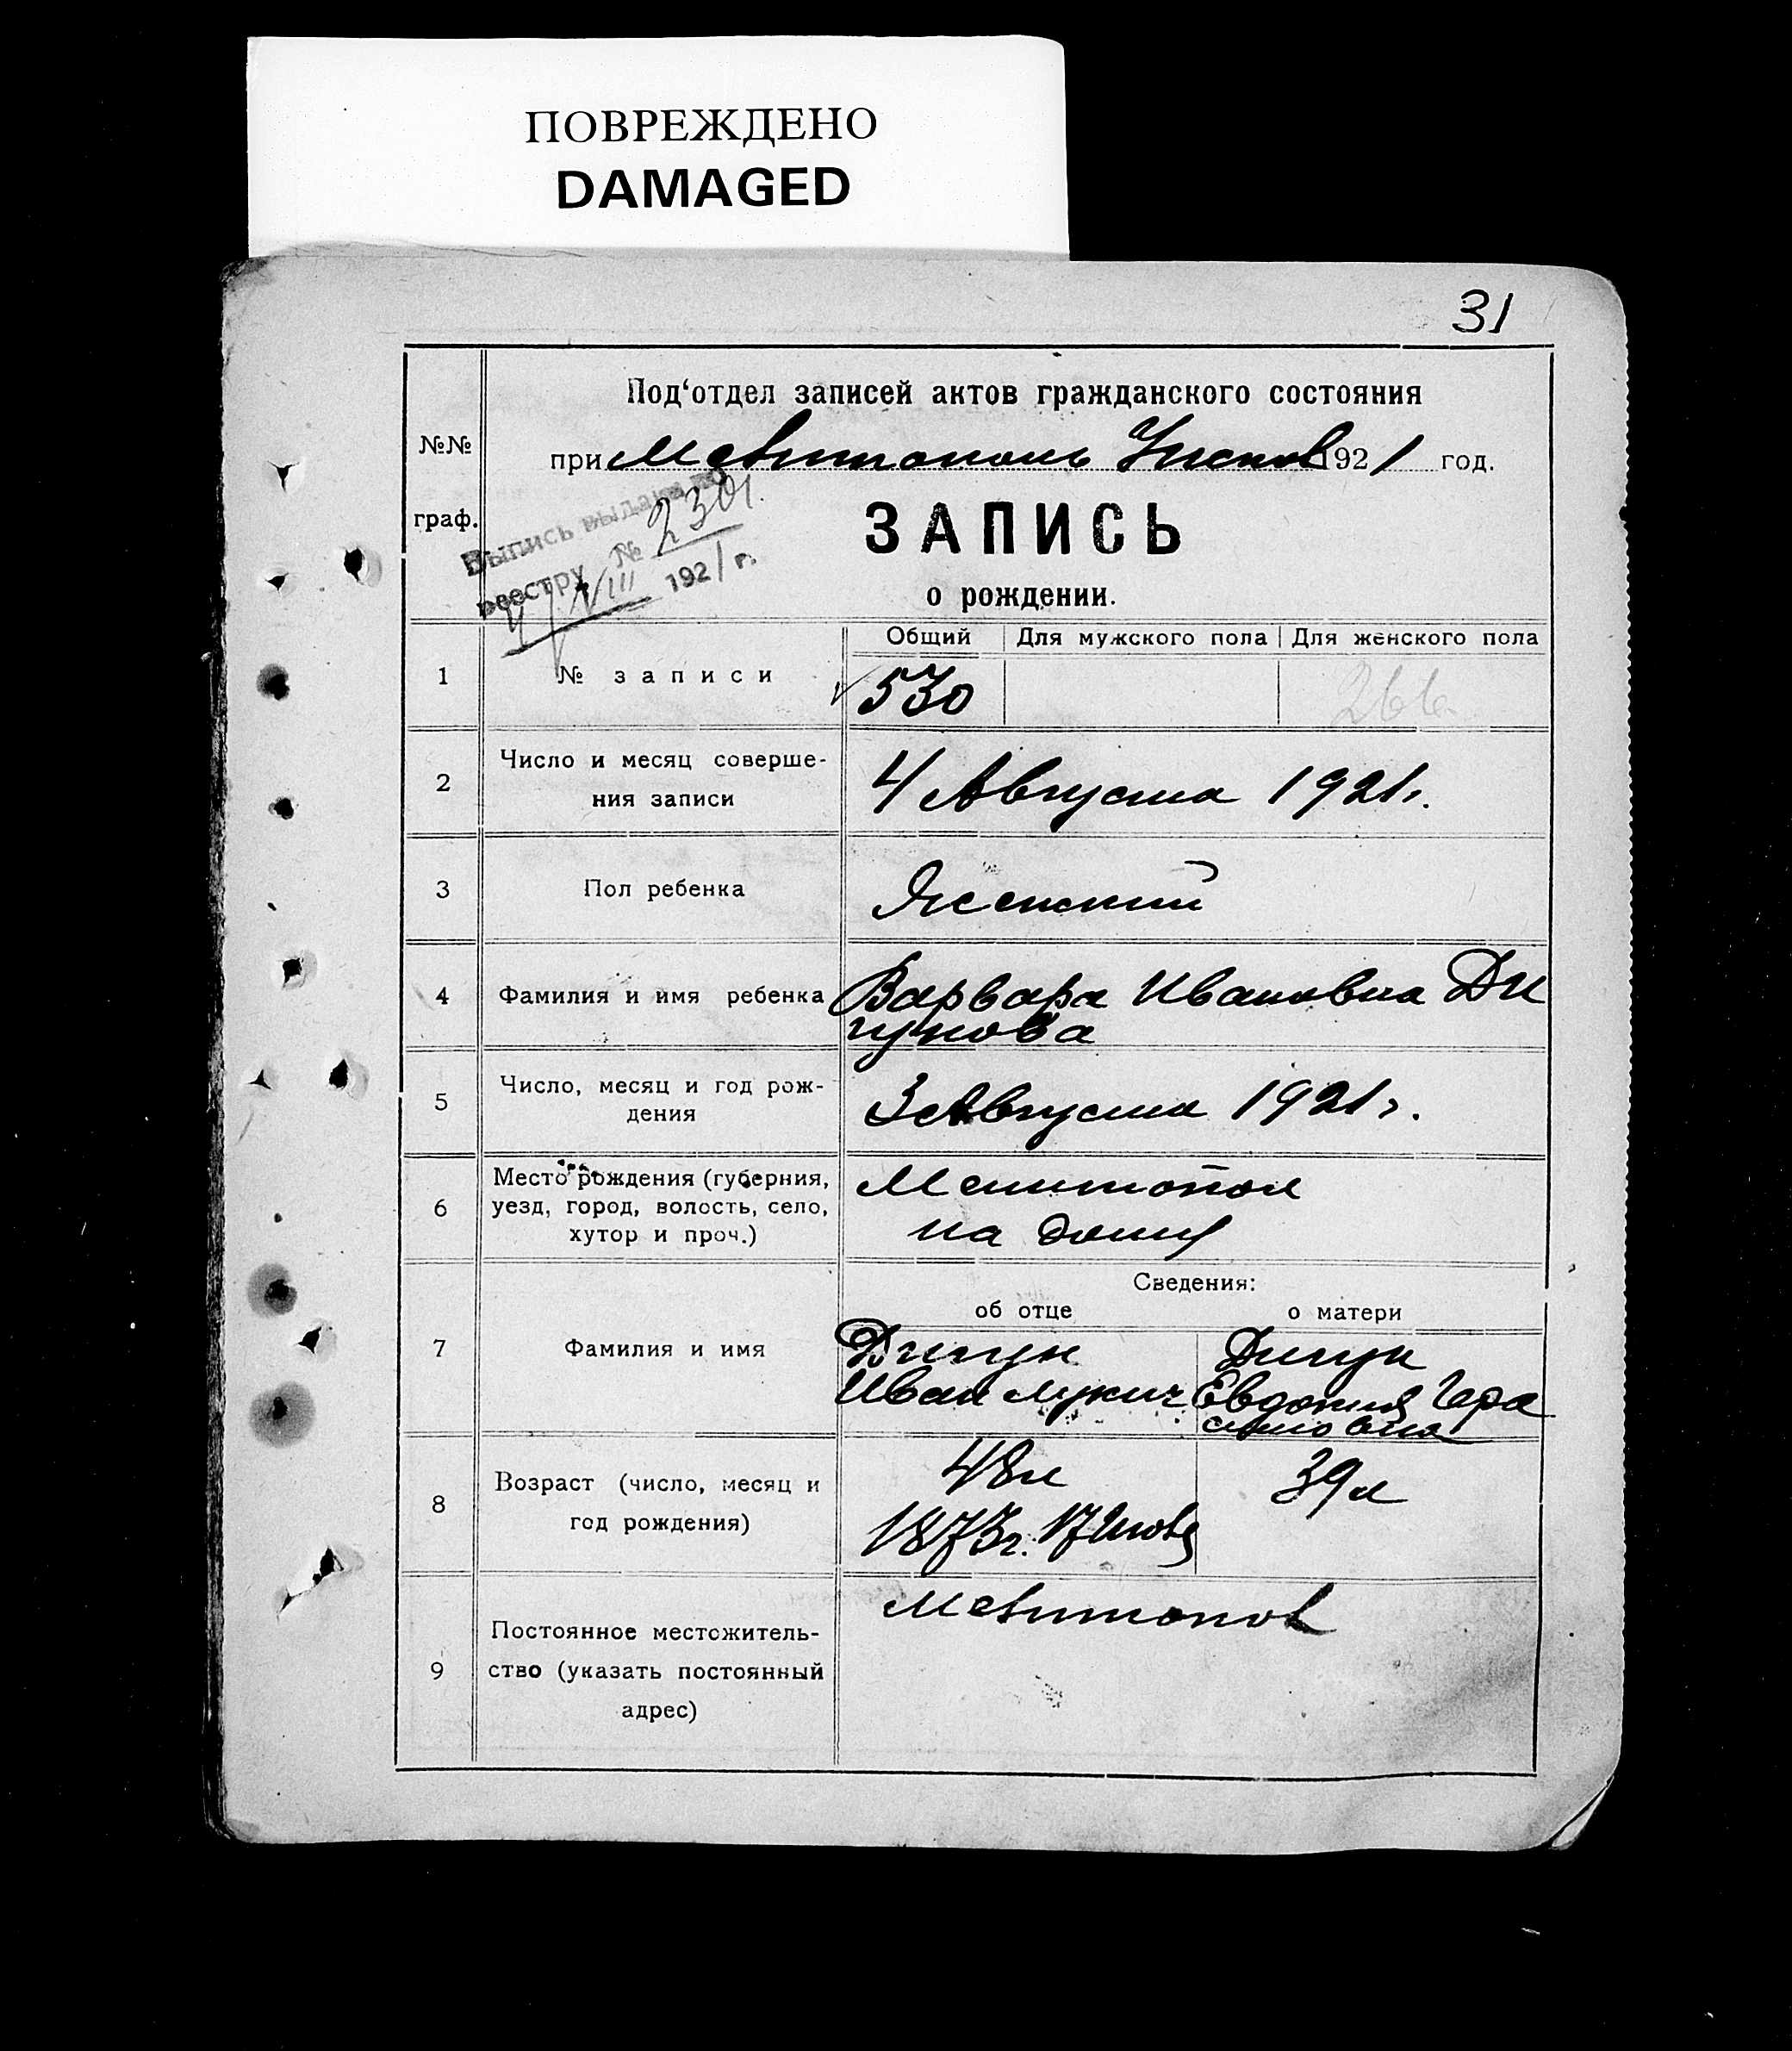 ПОВРЕЖДЕНО
DAMAGED
31
Под‘отдел записей актов гражданского состояния
№№
при Мелитополь 1921 год.
граф.
Выпись выдана по
реестру № 2301
4/VIII 1921 г.
ЗАПИСЬ
о рождении.
Общий Для мужского пола Для женского пола
1 № записи 530 266
2 Число и месяц соверше-
ния записи
4 Августа 1921г.
3 Пол ребенка Женский
4 Фамилия и имя ребенка Варвара Ивановна Ди
гунова
5 Число, месяц и год рож-
дения
3 Августа 1921г.
6 Место рождения (губерния,
уезд, город, волость, село,
хутор и проч.)
Мелитопол
на дому
Сведения:
об отце о матери
7 Фамилия и имя
Дигун
Иван Лукич
Дигун
Евдокия Гера
симовна
8 Возраст (число, месяц и
год рождения)
48л
1873г. 17
39л
9 Постоянное местожитель-
ство (указать постоянный
адрес)
Мелитопол